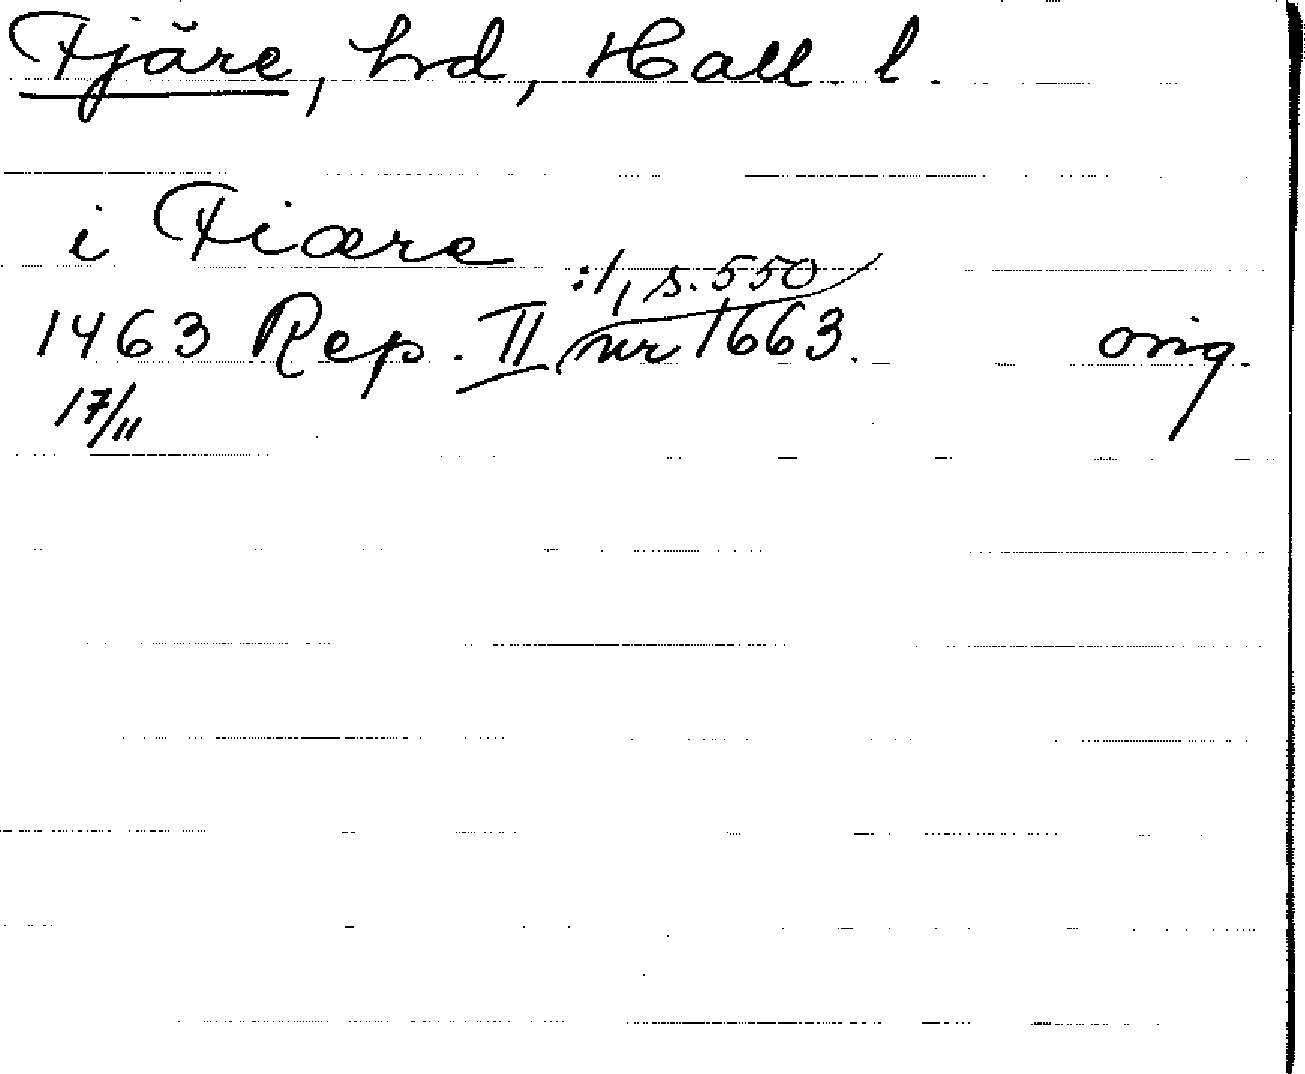 Fjäre, hrd, Hall. l.
i Fiære
1463 Rep. II :1, s. 550 nr 1663. orig.
17/11